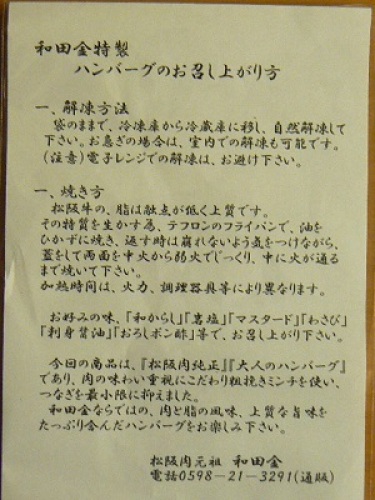 和田金特製
ハンバーグのお召し上がり方
一、解凍方法
袋のままで、冷凍庫から冷蔵庫に移し、自然解凍して
下さい。お急ぎの場合は、室内での解凍も可能です。
(注意)電子レンジでの解凍は、お避け下さい。
一、焼き方
松阪牛の、脂は融点が低く上質です。
その特質を生かす為、テフロンのフライパンで、油を
ひかずに焼き、返す時は崩れないよう気をつけながら、
蓋をして両面を中火から弱火でじっくり、中に火が通る
まで焼いて下さい。
加熱時間は、火力、調理器具等により異なります。
お好みの味、「和からし」「岩塩」「マスタード」「わさび」
「刺身醤油」「おろしポン酢」等で、お召し上がり下さい。
今回の商品は、『松阪肉純正』『大人のハンバーグ』
であり、肉の味わい重視にこだわり粗挽きミンチを使い、
つなぎを最小限に抑えました。
和田金ならではの、肉と脂の風味、上質な旨味を
たっぷり含んだハンバーグをお楽しみ下さい。
松阪肉元祖 和田金
電話0598-21-3291(通販)